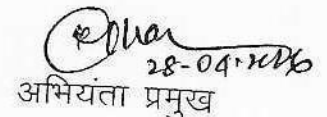 28-04-2026
अभियंता प्रमुख